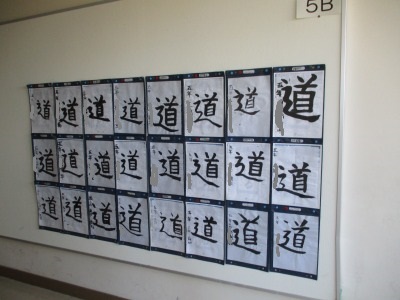 5B
道 道 道 道 道 道 道 道
道 道 道 道 道 道 道 道
道 道 道 道 道 道 道 道